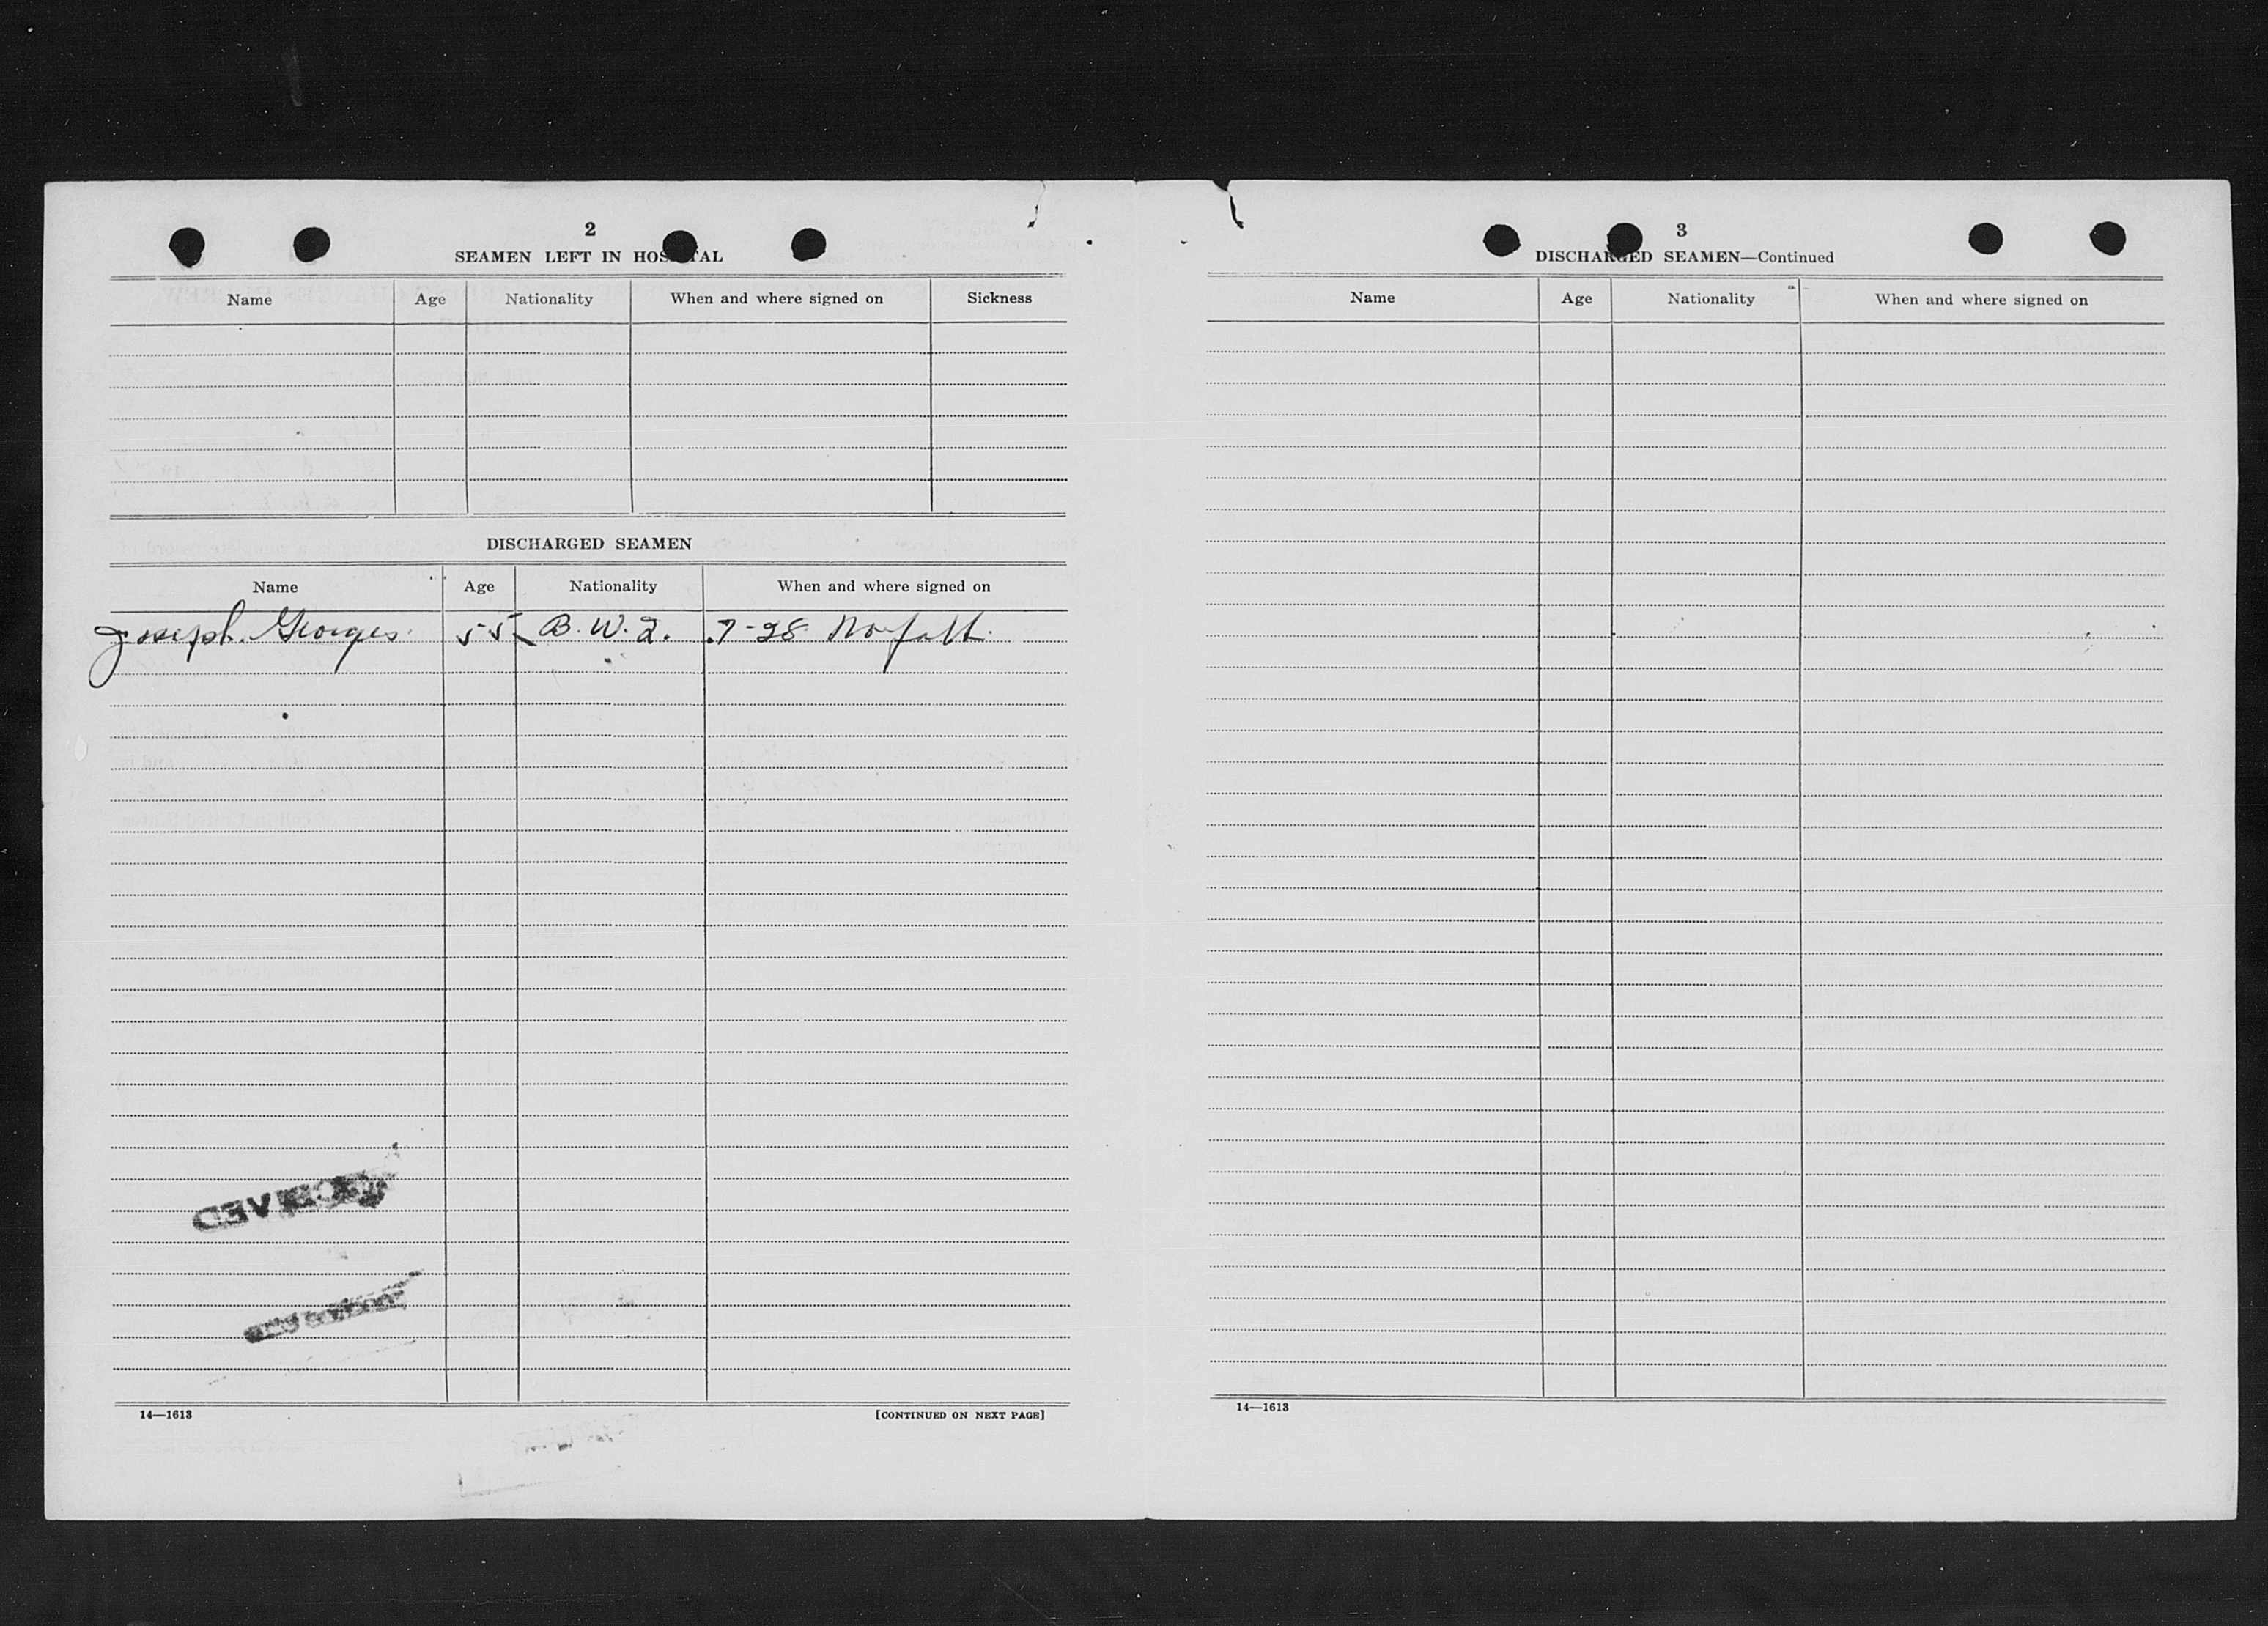 2
SEAMEN LEFT IN HOSPITAL
Name Age Nationality When and where signed on Sickness
DISCHARGED SEAMEN
Name Age Nationality When and where signed on
Joseph Georges 55 B. W. I. 7-28 Norfolk
14—1613
[CONTINUED ON NEXT PAGE]
3
DISCHARGED SEAMEN—Continued
Name Age Nationality When and where signed on
14—1613